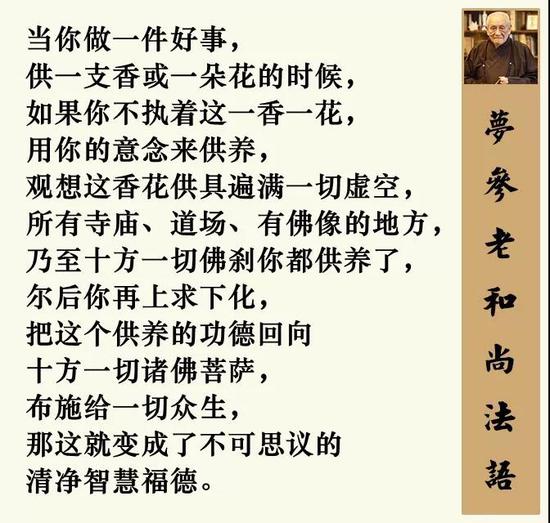 当你做一件好事，
供一支香或一朵花的时候，
如果你不执着这一香一花，
用你的意念来供养，
观想这香花供具遍满一切虚空，
所有寺庙、道场、有佛像的地方，
乃至十方一切佛刹你都供养了，
尔后你再上求下化，
把这个供养的功德回向
十方一切诸佛菩萨，
布施给一切众生，
那这就变成了不可思议的
清净智慧福德。
夢參老和尚法語